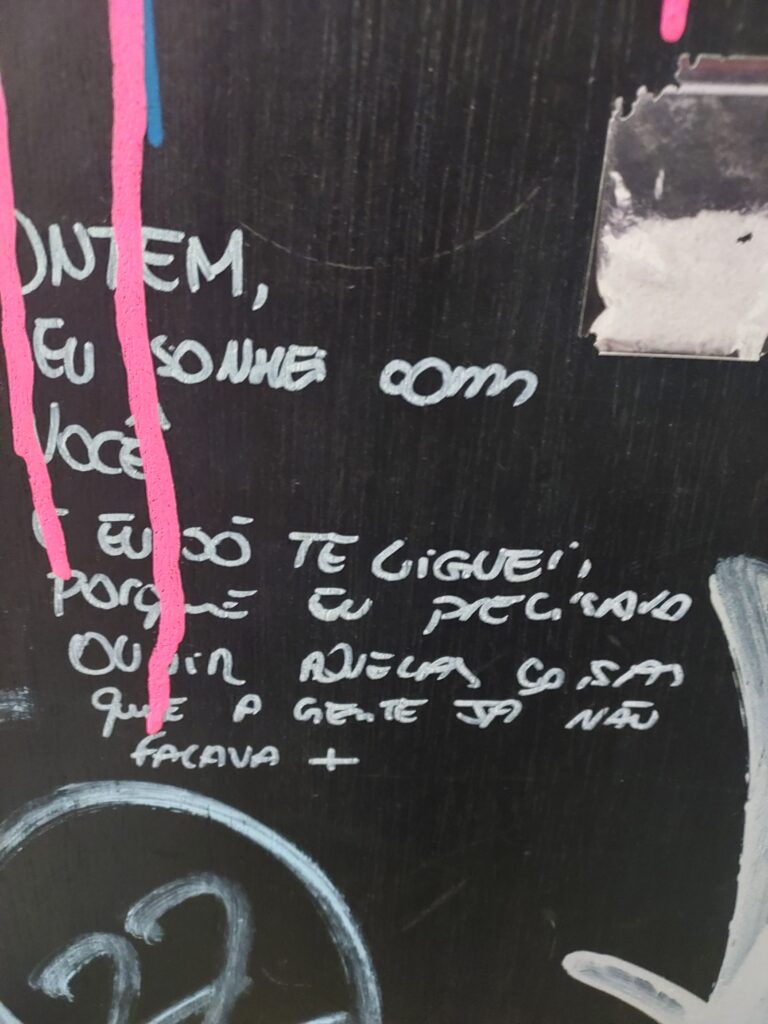 ONTEM,
EU SONHEI COM
VOCÊ
E EU SÓ TE LIGUEI,
PORQUE EU PRECISAVA
OUVIR AQUELAS COISAS
QUE A GENTE JÁ NÃO
FALAVA +
22